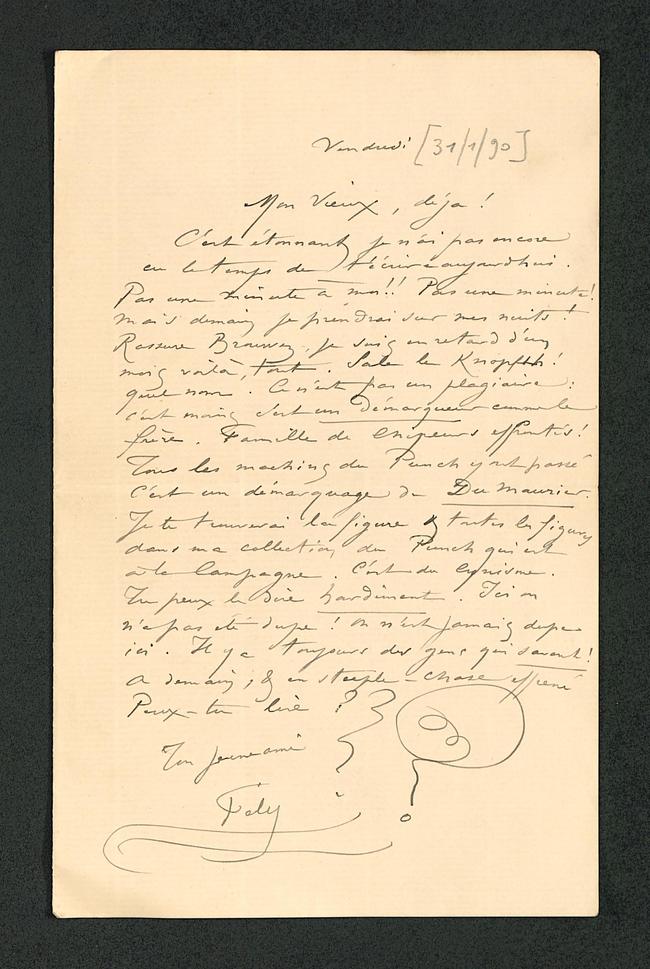 Vendredi [31/1/90]
Mon Vieux, déja !
C'est étonnant je n'ai pas encore
eu le temps de t'écrire aujourdhui.
Pas une minute à moi!! Pas une minute!
mais demain je prendrai sur mes nuits !
Rassure Brouwez, je suis en retard d'un
mois voilà, tout. Sale le Knopff !
quel nom. Ce n'est pas un plagiaire :
c'est moins c'est un démarqueur comme le
frère. Famille de chipeurs effrontés!
Tous les machins du Punch y ont passé
C'est un démarquage de Du Maurier.
Je te trouverai la figure & toutes les figures
dans ma collection du Punch qui est
à la Campagne. C'est du cynisme.
Tu peux le dire hardiment. Ici on
n'a pas été dupe ! on n'est jamais dupe
ici. Il y a toujours des gens qui savent!
a demain, & en steeple-chase effréné
Peux-tu lire ?
Ton jeune ami
Fély